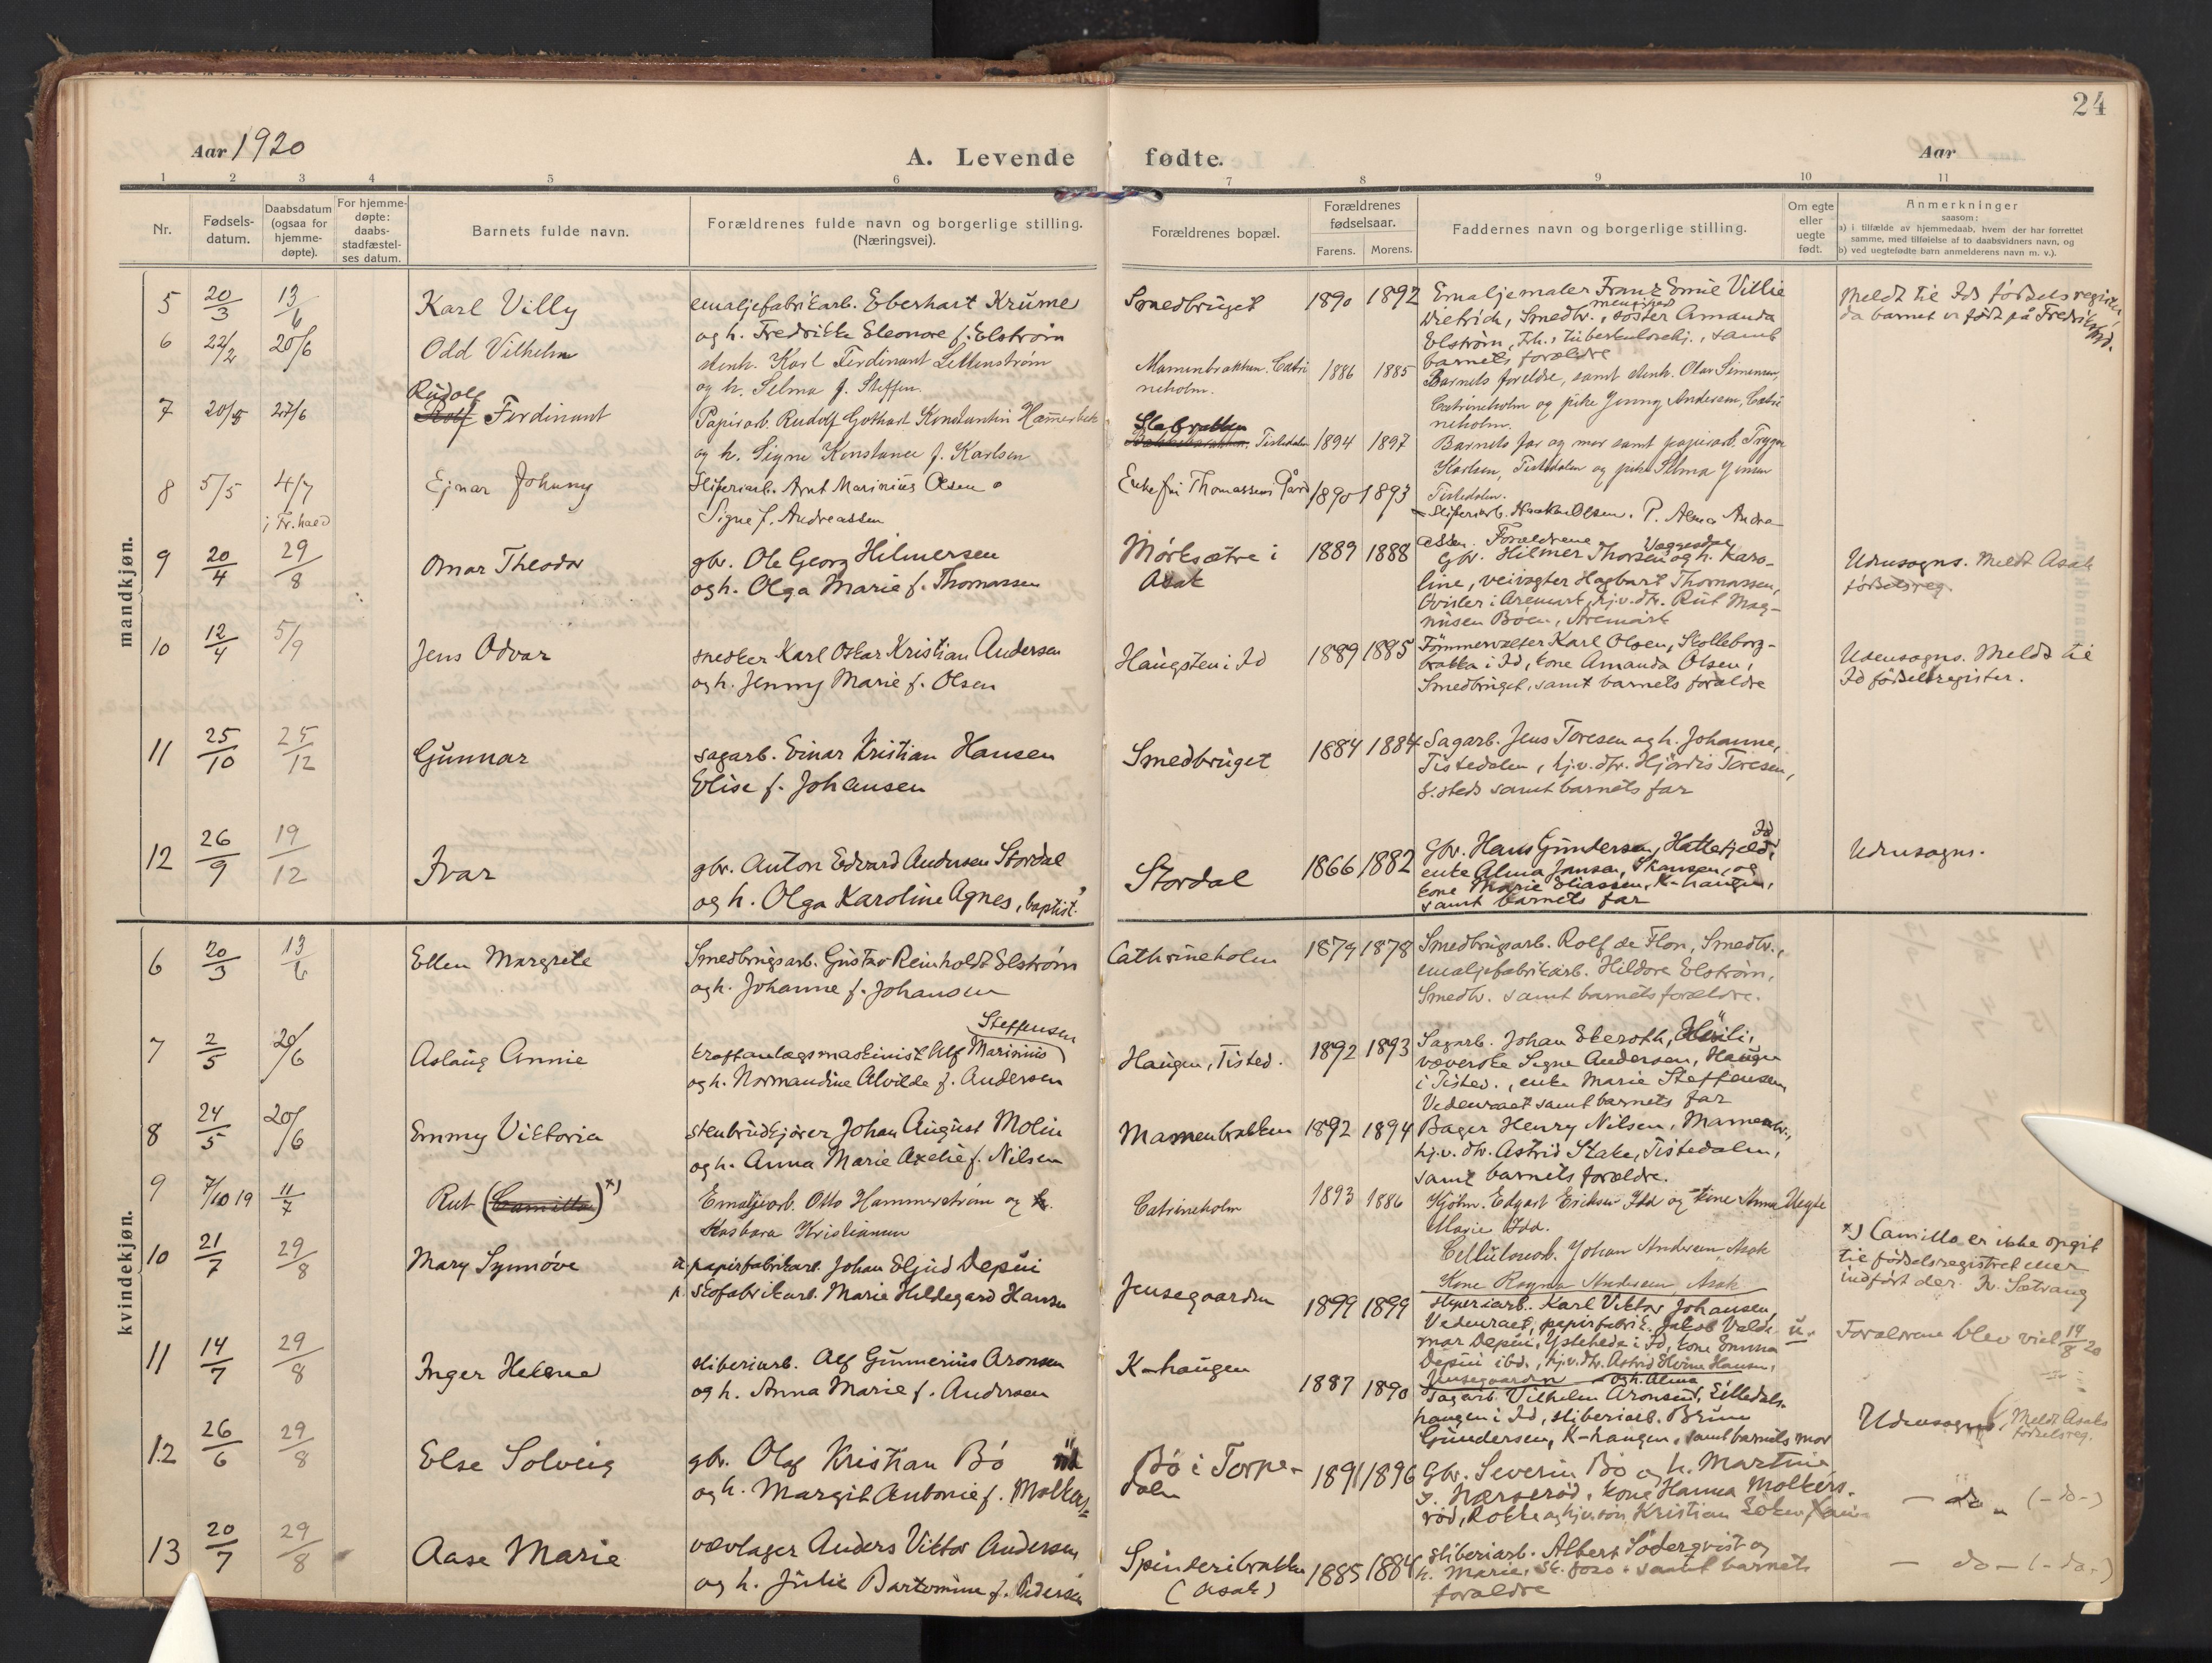 24
Aar 1920
A. Levende fødte.
Aar
1 2 3 4 5 6 7 8 9 10 11
Nr.
Fødsels-
datum.
Daabsdatum
(ogsaa for
hjemme-
døpte).
For hjemme-
døpte:
daabs-
stadfæstel-
ses datum.
Barnets fulde navn.
Forældrenes fulde navn og borgerlige stilling.
(Næringsvei).
Forældrenes bopæl.
Forældrenes
fødselsaar.
Farens. Morens.
Faddernes navn og borgerlige stilling.
Om egte
eller
uegte
født.
Anmerkninger
saasom:
a) i tilfælde av hjemmedaab, hvem der har forrettet
samme, med tilføielse af to daabsvidners navn, og
b) ved uegtefødte barn anmelderens navn m. v.).
mandkjøn.
5 20/3 13/6 Karl Villy
emaljefabrikarb. Eberhart Krume
og h. Fredrikke Eleonore f. Elstrøm
Smedbruget 1890 1892
Emaljemaler Franz Emil Villie
Dietrich, Smedbr., søster Amanda
Elstrøm, Frh., tuberkulosehj., samt
barnets forældre
Meldt til Ids fødselsregister,
da barnet er født på Fredrikshald.
6 22/2 20/6 Odd Vilhelm
stenh. Karl Ferdinant Lettenstrøm
og h. Selma f. Steffen.
Mammenbrakken. Catri
neholm. 1886 1885
Barnets foreldre, samt stenh. Olav Simensen,
Catrineholm og pike Jenny Andersen, Catri
neholm.
7 20/5 27/6 Rudolf
Rolf Ferdinant
Papirarb. Rudolf Gothart Konstantin Hammerbek
og h. Signe Konstance f. Karlsen
Tistedalen 1894 1897
Barnets far og mor samt papirarb. Trygve
Karlsen, Tistedalen og pike Selma Jensen
Tistedalen.
8 5/5 4/7
i Fr.hald
Ejnar Johnny
Sliperiarb. Arnt Marinius Olsen o
Signe f. Andreassen
Enkefru Thomassens Gård 1890 1893
Sliperiarb. Haakon Olsen. P. Alma Andre-
assen. Forældrene
9 20/4 29/8 Omar Theodor
gbr. Ole Georg Hilmersen
og h. Olga Marie f. Thomassen
Mørksætre i
Asak 1889 1888
Gbr. Hilmer Thorsen og h. Karo-
line, veivogter Hagbart Thomassen,
Kvisler i Aremark, hj.v.dtr. Rut Mag-
nusen Bøen, Aremark
Udensogns. Meldt Asak
fødselsreg.
10 12/4 5/9 Jens Odvar
snekker Karl Oskar Kristian Andersen
og h. Jenny Marie f. Olsen
Haugsten i Id 1889 1885
Tømmervalter Karl Olsen, Skolleborg-
brakka i Id, kone Amanda Olsen,
Smedbruget, samt barnets forældre
Udensogns. Meldt til
Id fødselsregister.
11 25/10 25/12 Gunnar
sagarb. Einar Kristian Hansen
Elise f. Johansen
Smedbruget 1884 1884
Sagarb. Jens Toresen og h. Johanne,
Tistedalen, hj.v.dtr. Hjørdis Toresen,
s.steds samt barnets far
12 26/9 19/12 Ivar
gbr. Anton Edvard Andersen Stordal
og h. Olga Karoline Agnes, baptist.
Stordal 1866 1882
Gbr. Hans Gundersen, Hattefjeld, Id
enke Alma Jansen, Skansen, og
kone Marie Eliassen, K-haugen,
samt barnets far
Udensogns.
kvindekjøn.
6 20/3 13/6 Ellen Margrete
Smedbrugsarb. Gustav Reinholdt Elstrøm
og h. Johanne f. Johansen
Cathrineholm 1879 1878
Smedbrugsarb. Rolf de Flon, Smedbr.,
emaljefabrikarb. Hildore Elstrøm,
Smedbr. samt barnets forældre.
7 2/5 20/6 Aslaug Annie
kraftanlægsmaskinist Alf Marinius Steffensen
og h. Normandine Alvilde f. Andersen
Haugen, Tisted. 1892 1893
Sagarb. Johan Ekeroth,
væverske Signe Andersen, Haugen
i Tisted., enke Marie Steffensen,
Vedenraet samt barnets far
8 24/5 20/6 Emmy Viktoria
stenbrudkjører Johan August Molin
og h. Anna Marie Axelie f. Nilsen
Mammenbrakken 1892 1894
Bager Henry Nilsen, Mammenbr.,
hj.v. dtr. Astrid Stake, Tistedalen,
samt barnets forældre.
9 7/10 19 11/7 Rut (Camilla) x)
Emaljearb. Otto Hammerstrøm og h.
Kasbara Kristiansen
Catrineholm 1893 1886
Kjøbm. Edgart Eriksen Idd og kone Anna
Marie Idd.
Uegte
Cellulosearb. Johan Andersen Asak
Kone Ragna Andersen, Asak
x) Camilla er ikke opgit
til fødselsregistret eller
indført der. N. Sætrang
10 21/7 29/8 Mary Synnøve
u. papirfabrikarb. Johan Eljud Depui
p. Skofabrikarb. Marie Hildegard Hansen
Jensegaarden 1899 1899
sliperiarb. Karl Viktor Johansen,
Vedenraet, papirfabrik. Jakob Valde-
mar Depui, Ystehede i Id, kone Emma
Depui ibd., hj.v.dtr. Astrid Elvine Hansen,
Jensegaarden
u.
Forældrene blev viet 14/8 20
11 14/7 29/8 Inger Helene
sliberiarb. Alf Gunnerius Aronsen
og h. Anna Marie f. Andersen
K-haugen 1887 1890
Sagarb. Vilhelm Aronsen og h. Alma, Eilledals-
haugen i Id, sliberiarb. Brun
Gundersen, K-haugen, samt barnets mor
12 26/6 29/8 Else Solveig
gbr. Olaf Kristian Bø
og h. Margit Antonie f. Molkers-
Bø i Torpe-
dalen 1891 1896
Gbr. Severin Bø og h. Martine
s. Næsserød, kone Hanna Molkers-
rød, Rokke og hj.v.søn Kristian
Udensogns (Meldt Asaks
fødselsreg.
— do „ (-do-)
13 20/7 29/8 Aase Marie
vævlager Anders Viktor Andersen
og h. Julie Bartomine f. Pedersen
Spinderibrakken
(Asak) 1885 1884
Sliberiarb. Albert Söderqvist og
h. Marie, samt barnets
forældre
— do — (-do-)